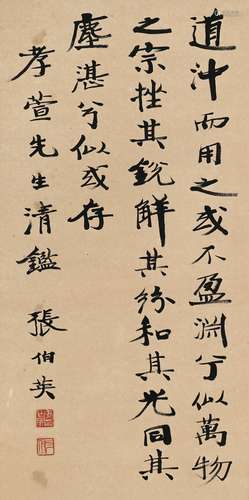 道沖而用之或不盈淵兮似萬物
之宗挫其銳解其紛和其光同其
塵湛兮似或存
孝萱先生清鑑
張伯英